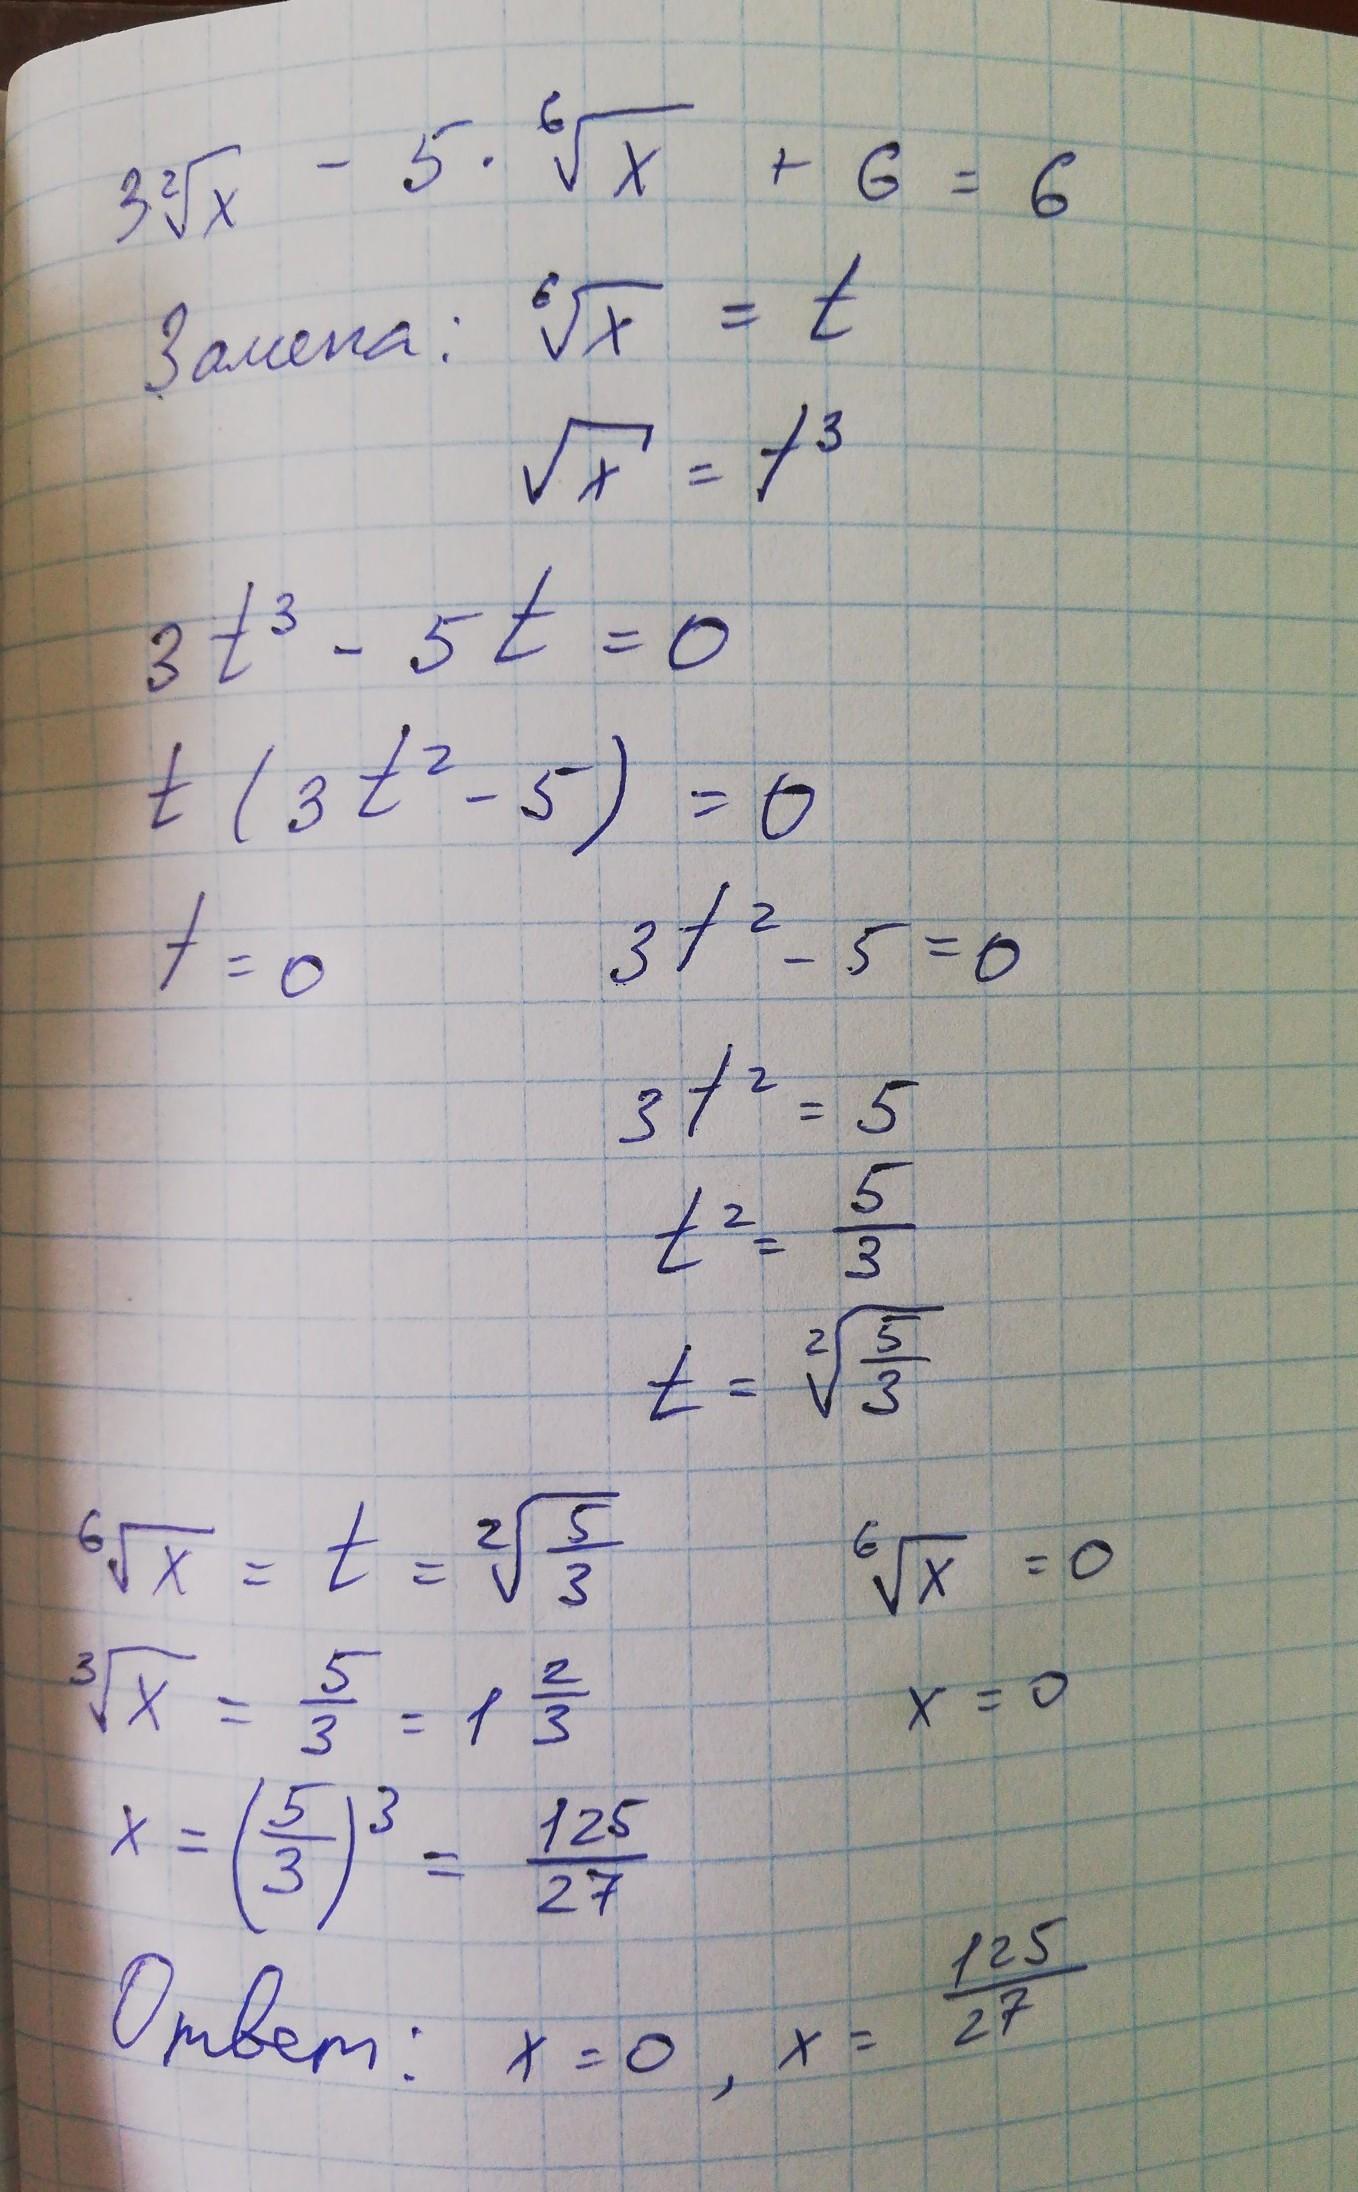 3²√x - 5 · ⁶√x + 6 = 6
Замена: ⁶√x = t
√x = t³
3t³ - 5t = 0
t(3t² - 5) = 0
t = 0 3t² - 5 = 0
3t² = 5
t² = 5/3
t = ²√(5/3)
⁶√x = t = ²√(5/3) ⁶√x = 0
³√x = 5/3 = 1 2/3 x = 0
x = (5/3)³ = 125/27
Ответ: x = 0, x = 125/27